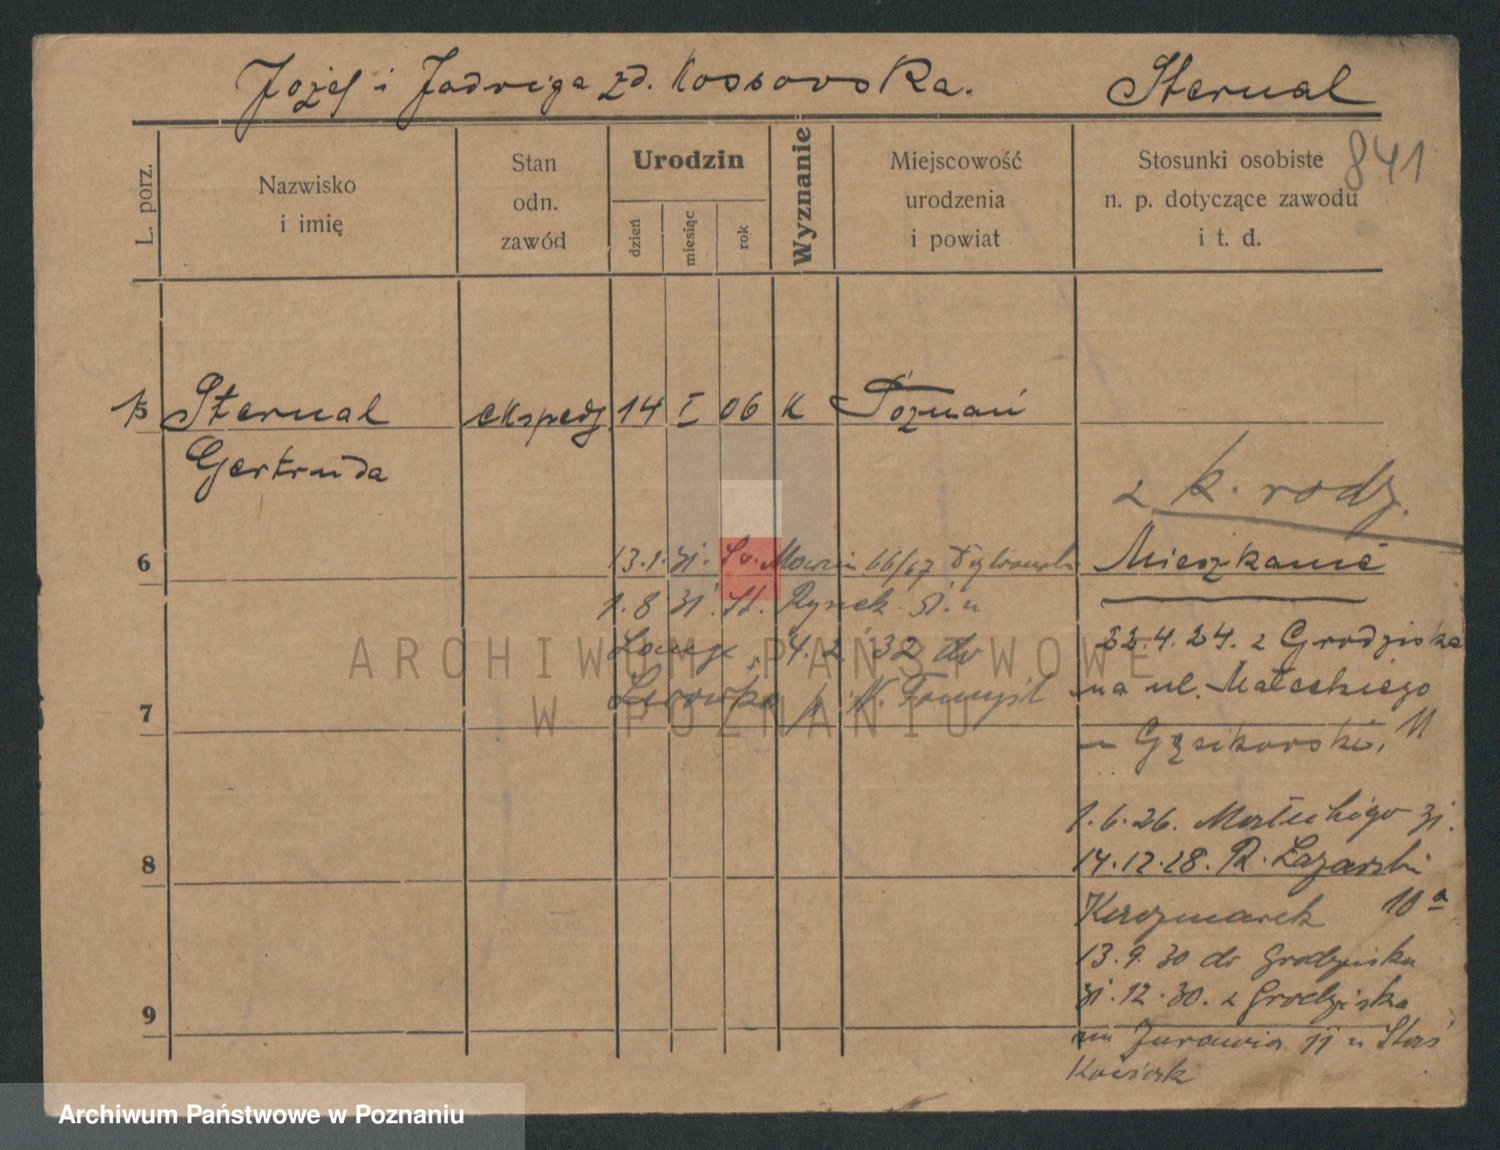 Józef i Jadwiga zd. Kossowska. Sternal
841
L. porz.
Nazwisko
i imię
Stan
odn.
zawód
Urodzin
dzień
miesiąc
rok
Wyznanie
Miejscowość
urodzenia
i powiat
Stosunki osobiste
n. p. dotyczące zawodu
i t. d.
5 Sternal ekspedj 14 I 06 K Poznań
Gertruda
z k. rodz.
6
13.1.31. Św. Marcin 66/67
Mieszkanie
1.8 31. St. Rynek 51. u
22.4.24. z Grodziska
4.2 32 do
Lwówka p. N. Tomyśl
na ul. Małeckiego
7
u Gąsikorski. 11
1.6.26. Małeckiego 31.
8
14.12.28. R. Łazarski
Kaczmarek 10a
13.9.30 do Grodziska
9
31.12.30. z Grodziska
Żurawia 11 u
ARCHIWUM PAŃSTWOWE
W POZNANIU
Archiwum Państwowe w Poznaniu